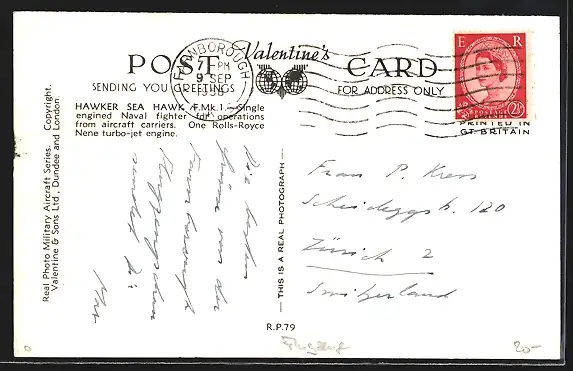 POST
Valentine's
CARD
SENDING YOU GREETINGS
FOR ADDRESS ONLY
FARNBOROUGH
7 PM
9 SEP
E R
POSTAGE
REVENUE
2½
PRINTED IN
GT. BRITAIN
HAWKER SEA HAWK F.Mk.1.—Single
engined Naval fighter for operations
from aircraft carriers. One Rolls-Royce
Nene turbo-jet engine.
Real Photo Military Aircraft Series. Copyright.
Valentine & Sons Ltd., Dundee and London.
Die besten
Grüsse von der
Farnborough
sendet Dir
— THIS IS A REAL PHOTOGRAPH —
Frau P. Kress
Scheideggstr. 120
Zürich 2
Switzerland
R.P.79
Flugzeug
20-